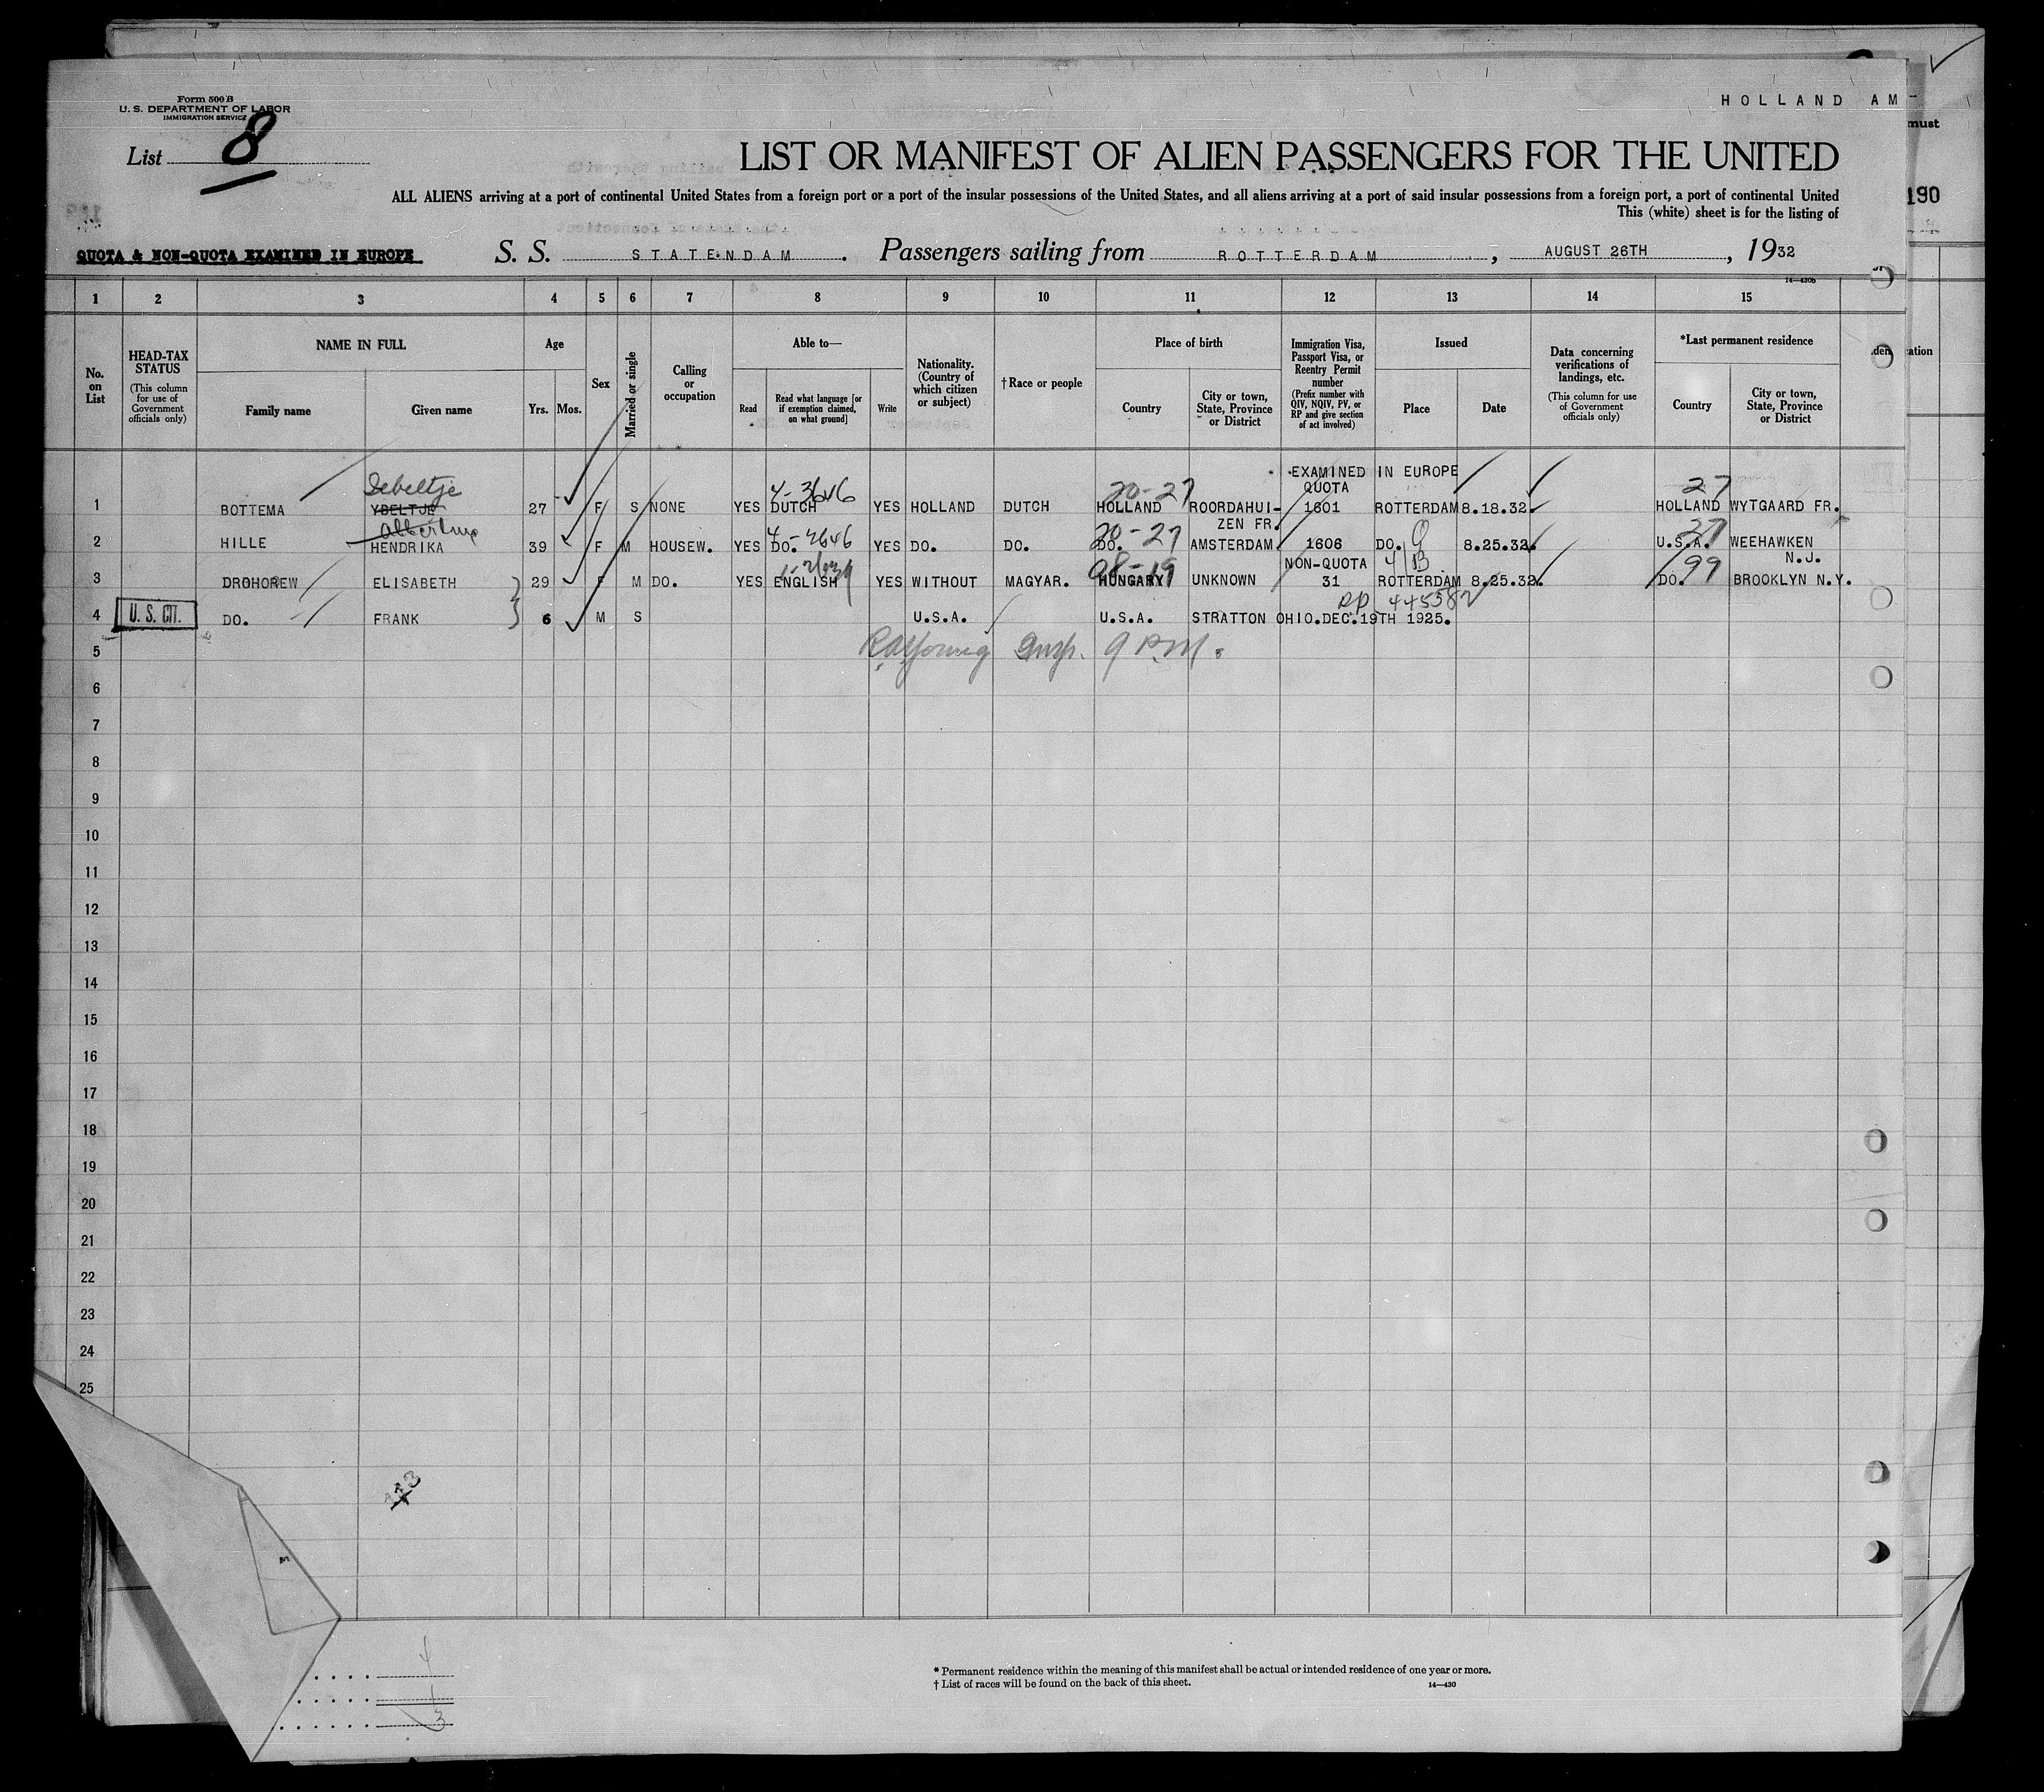 Form 500 B
U. S. DEPARTMENT OF LABOR
IMMIGRATION SERVICE
HOLLAND AM-
must
List 8
LIST OR MANIFEST OF ALIEN PASSENGERS FOR THE UNITED
190
ALL ALIENS arriving at a port of continental United States from a foreign port or a port of the insular possessions of the United States, and all aliens arriving at a port of said insular possessions from a foreign port, a port of continental United
This (white) sheet is for the listing of
QUOTA & NON-QUOTA EXAMINED IN EUROPE S. S. STATENDAM. Passengers sailing from ROTTERDAM, AUGUST 26TH, 1932
14—430b
1 2 3 4 5 6 7 8 9 10 11 12 13 14 15
No. on List
HEAD-TAX STATUS
(This column for use of Government officials only)
NAME IN FULL
Family name Given name
Age
Yrs. Mos.
Sex
Married or single
Calling or occupation
Able to—
Read
Read what language [or if exemption claimed, on what ground]
Write
Nationality. (Country of which citizen or subject)
†Race or people
Place of birth
Country
City or town, State, Province or District
Immigration Visa, Passport Visa, or Reentry Permit number
(Prefix number with QIV, NQIV, PV, or RP and give section of act involved)
Issued
Place Date
Data concerning verifications of landings, etc.
(This column for use of Government officials only)
*Last permanent residence
Country
City or town, State, Province or District
EXAMINED IN EUROPE
Sebeltje 4-3646 20-27 QUOTA 27
1 BOTTEMA YBELTJE 27 F S NONE YES DUTCH YES HOLLAND DUTCH HOLLAND ROORDAHUI- 1601 ROTTERDAM 8.18.32. HOLLAND WYTGAARD FR.
ZEN FR.
Albertina 4-4646 20-27 27
2 HILLE HENDRIKA 39 F M HOUSEW. YES DO. YES DO. DO. DO. AMSTERDAM. 1606 DO. 8.25.32. U.S.A. WEEHAWKEN
N.J.
NON-QUOTA 4 B
08-19 99
3 DROHOREW ELISABETH 29 F M DO. YES ENGLISH YES WITHOUT MAGYAR. HUNGARY UNKNOWN 31 ROTTERDAM 8.25.32. DO. BROOKLYN N.Y.
RP 445582
4 U. S. CIT. DO. FRANK 6 M S U.S.A. U.S.A. STRATTON OHIO.DEC.19TH 1925.
5 Insp. 9 P.M.
6
7
8
9
10
11
12
13
14
15
16
17
18
19
20
21
22
23
24
25
4
1
3
* Permanent residence within the meaning of this manifest shall be actual or intended residence of one year or more.
† List of races will be found on the back of this sheet.
14—430